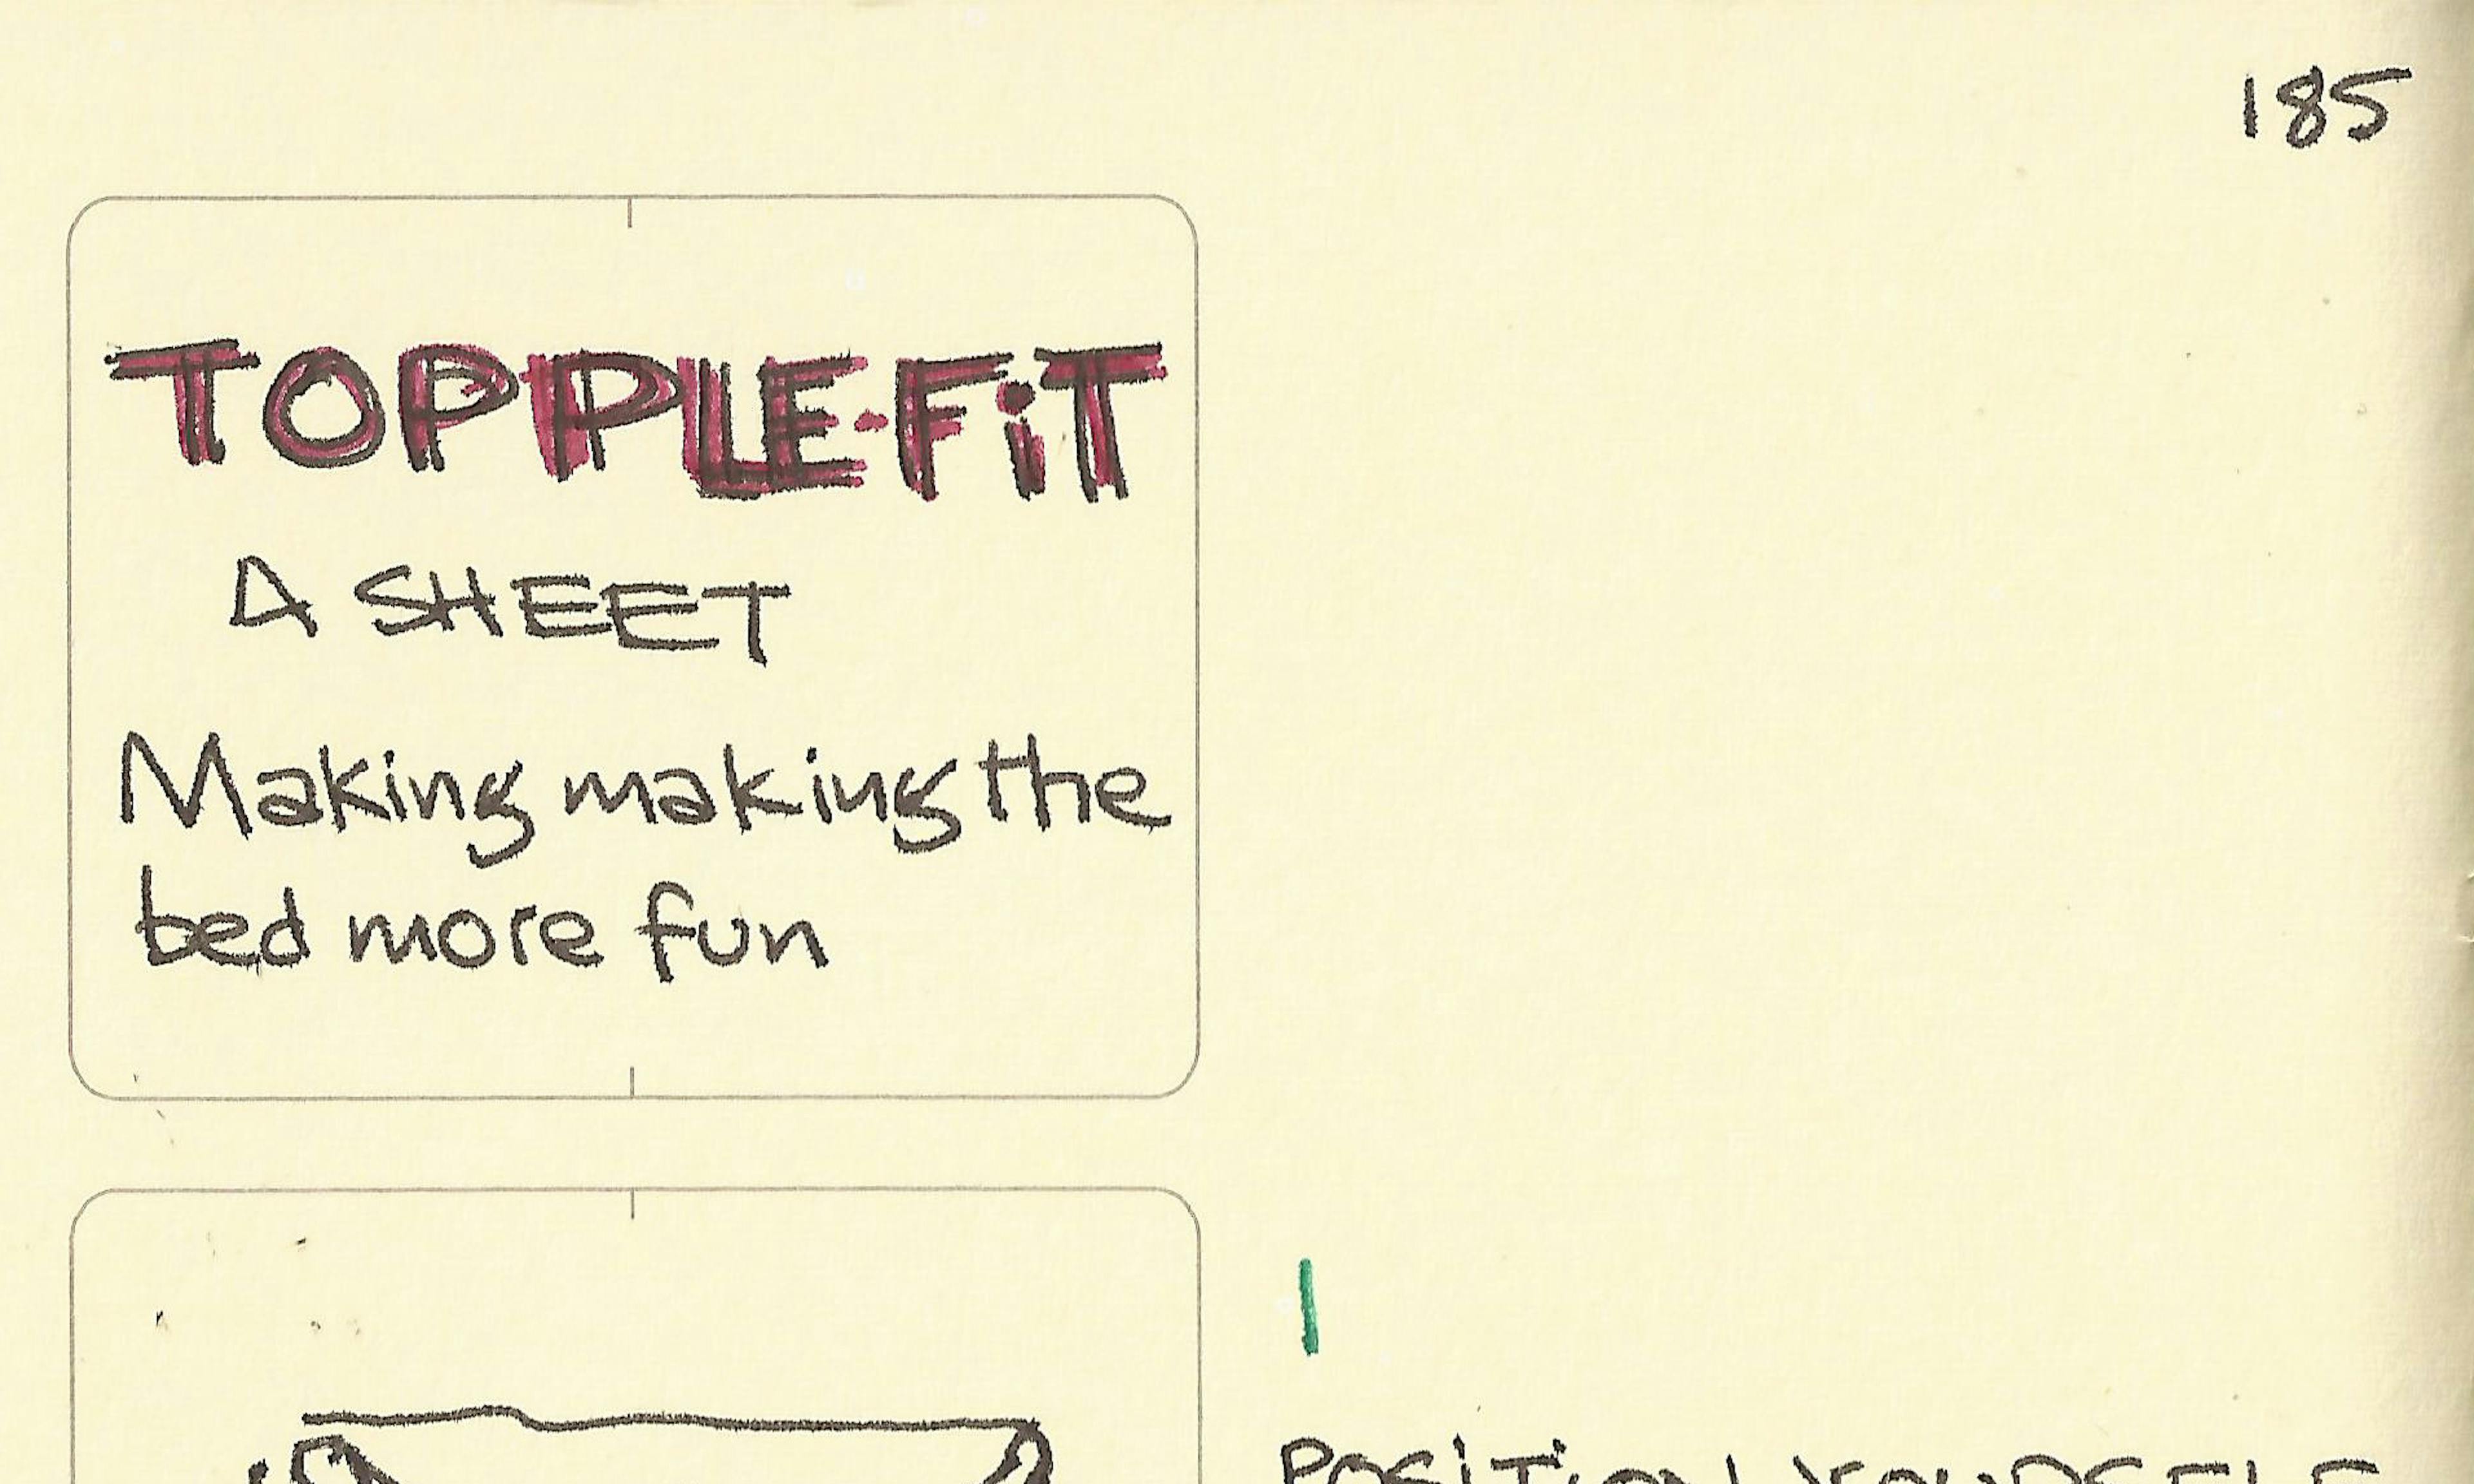 185
TOPPLE-FiT
A SHEET
Making making the
bed more fun
1
POSiTiON YOURSELF